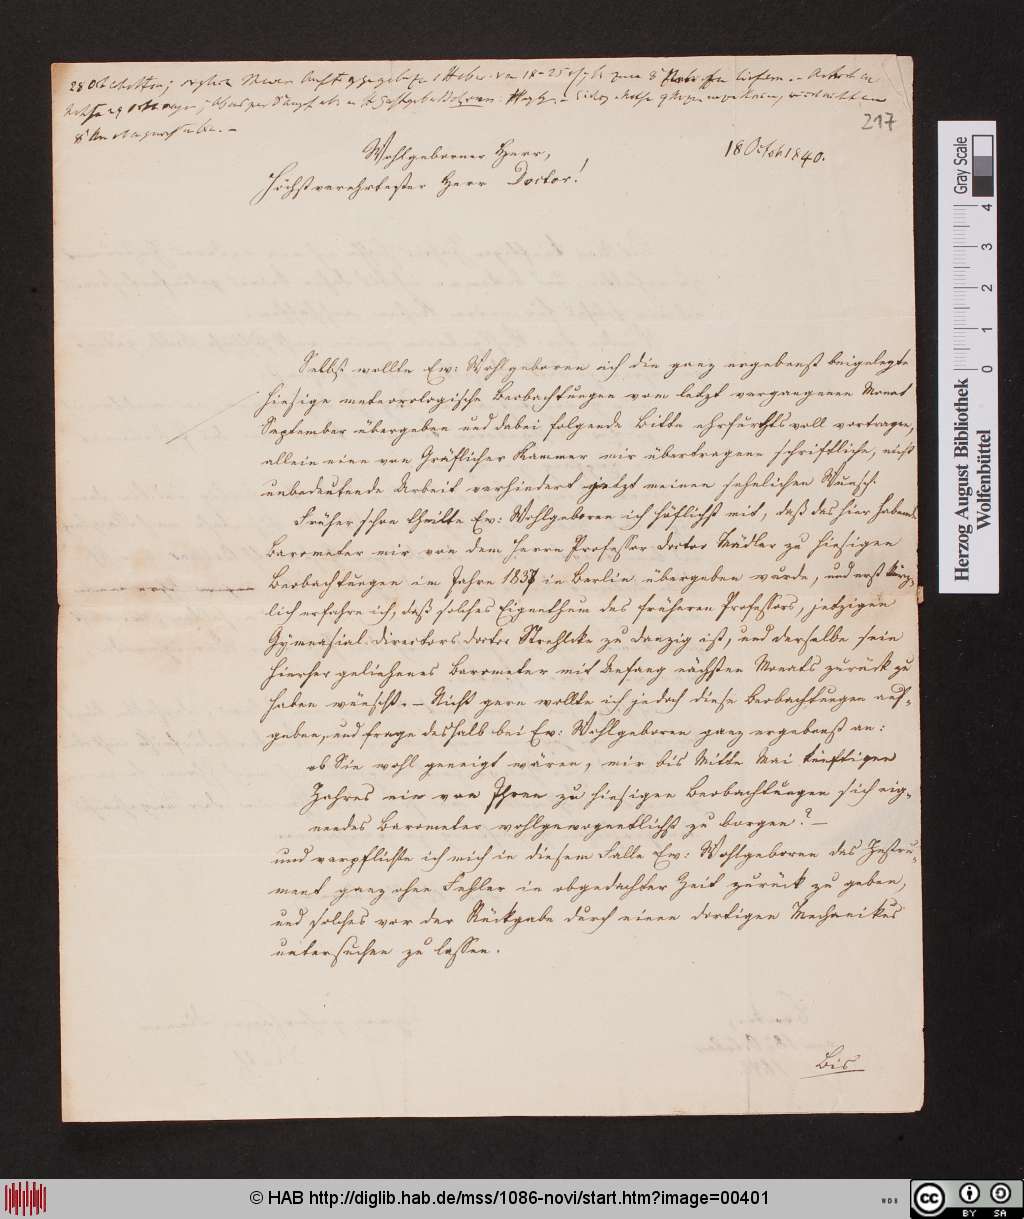 217
18 Octob 1840.
Wohlgeborner Herr,
Höchstverehrtester Herr Doctor!
Selbst wollte Ew: Wohlgeboren ich die ganz ergebenst beigelegte
hiesige meteorologische Beobachtungen vom letzt vergangenen Monat
September übergeben und dabei folgende Bitte ehrfurchtsvoll vortragen,
allein eine von Gräflicher Kammer mir übertragene schriftliche, nicht
unbedeutende Arbeit verhindert jetzt meinen sehnlichen Wunsch.
Früher schon theilte Ew: Wohlgeboren ich höflichst mit, daß das hier habende
Barometer mir von dem Herrn Professor Doctor Mädler zu hiesigen
Beobachtungen im Jahre 1837 in Berlin übergeben wurde, und erst kürz-
lich erfahre ich, daß solches Eigenthum des früheren Professors, jetzigen
Gymnasial-Directors Doctor Strehlcke zu Danzig ist, und derselbe sein
hierher geliehenes Barometer mit Anfang nächsten Monats zurück zu
haben wünscht. – Nicht gern wollte ich jedoch diese Beobachtungen auf-
geben, und frage deshalb bei Ew: Wohlgeboren ganz ergebenst an:
ob Sie wohl geneigt wären, mir bis Mitte Mai künftigen
Jahres ein von Ihnen zu hiesigen Beobachtungen sich eig-
nendes Barometer wohlgewogentlichst zu borgen? –
und verpflichte ich mich in diesem Falle Ew: Wohlgeboren das Instru-
ment ganz ohne Fehler in obgedachter Zeit zurück zu geben,
und solches vor der Rückgabe durch einen dortigen Mechanikus
untersuchen zu lassen.
Bis
Gray Scale
0 1 2 3 4
Herzog August Bibliothek
Wolfenbüttel
© HAB http://diglib.hab.de/mss/1086-novi/start.htm?image=00401
WDB
cc BY SA